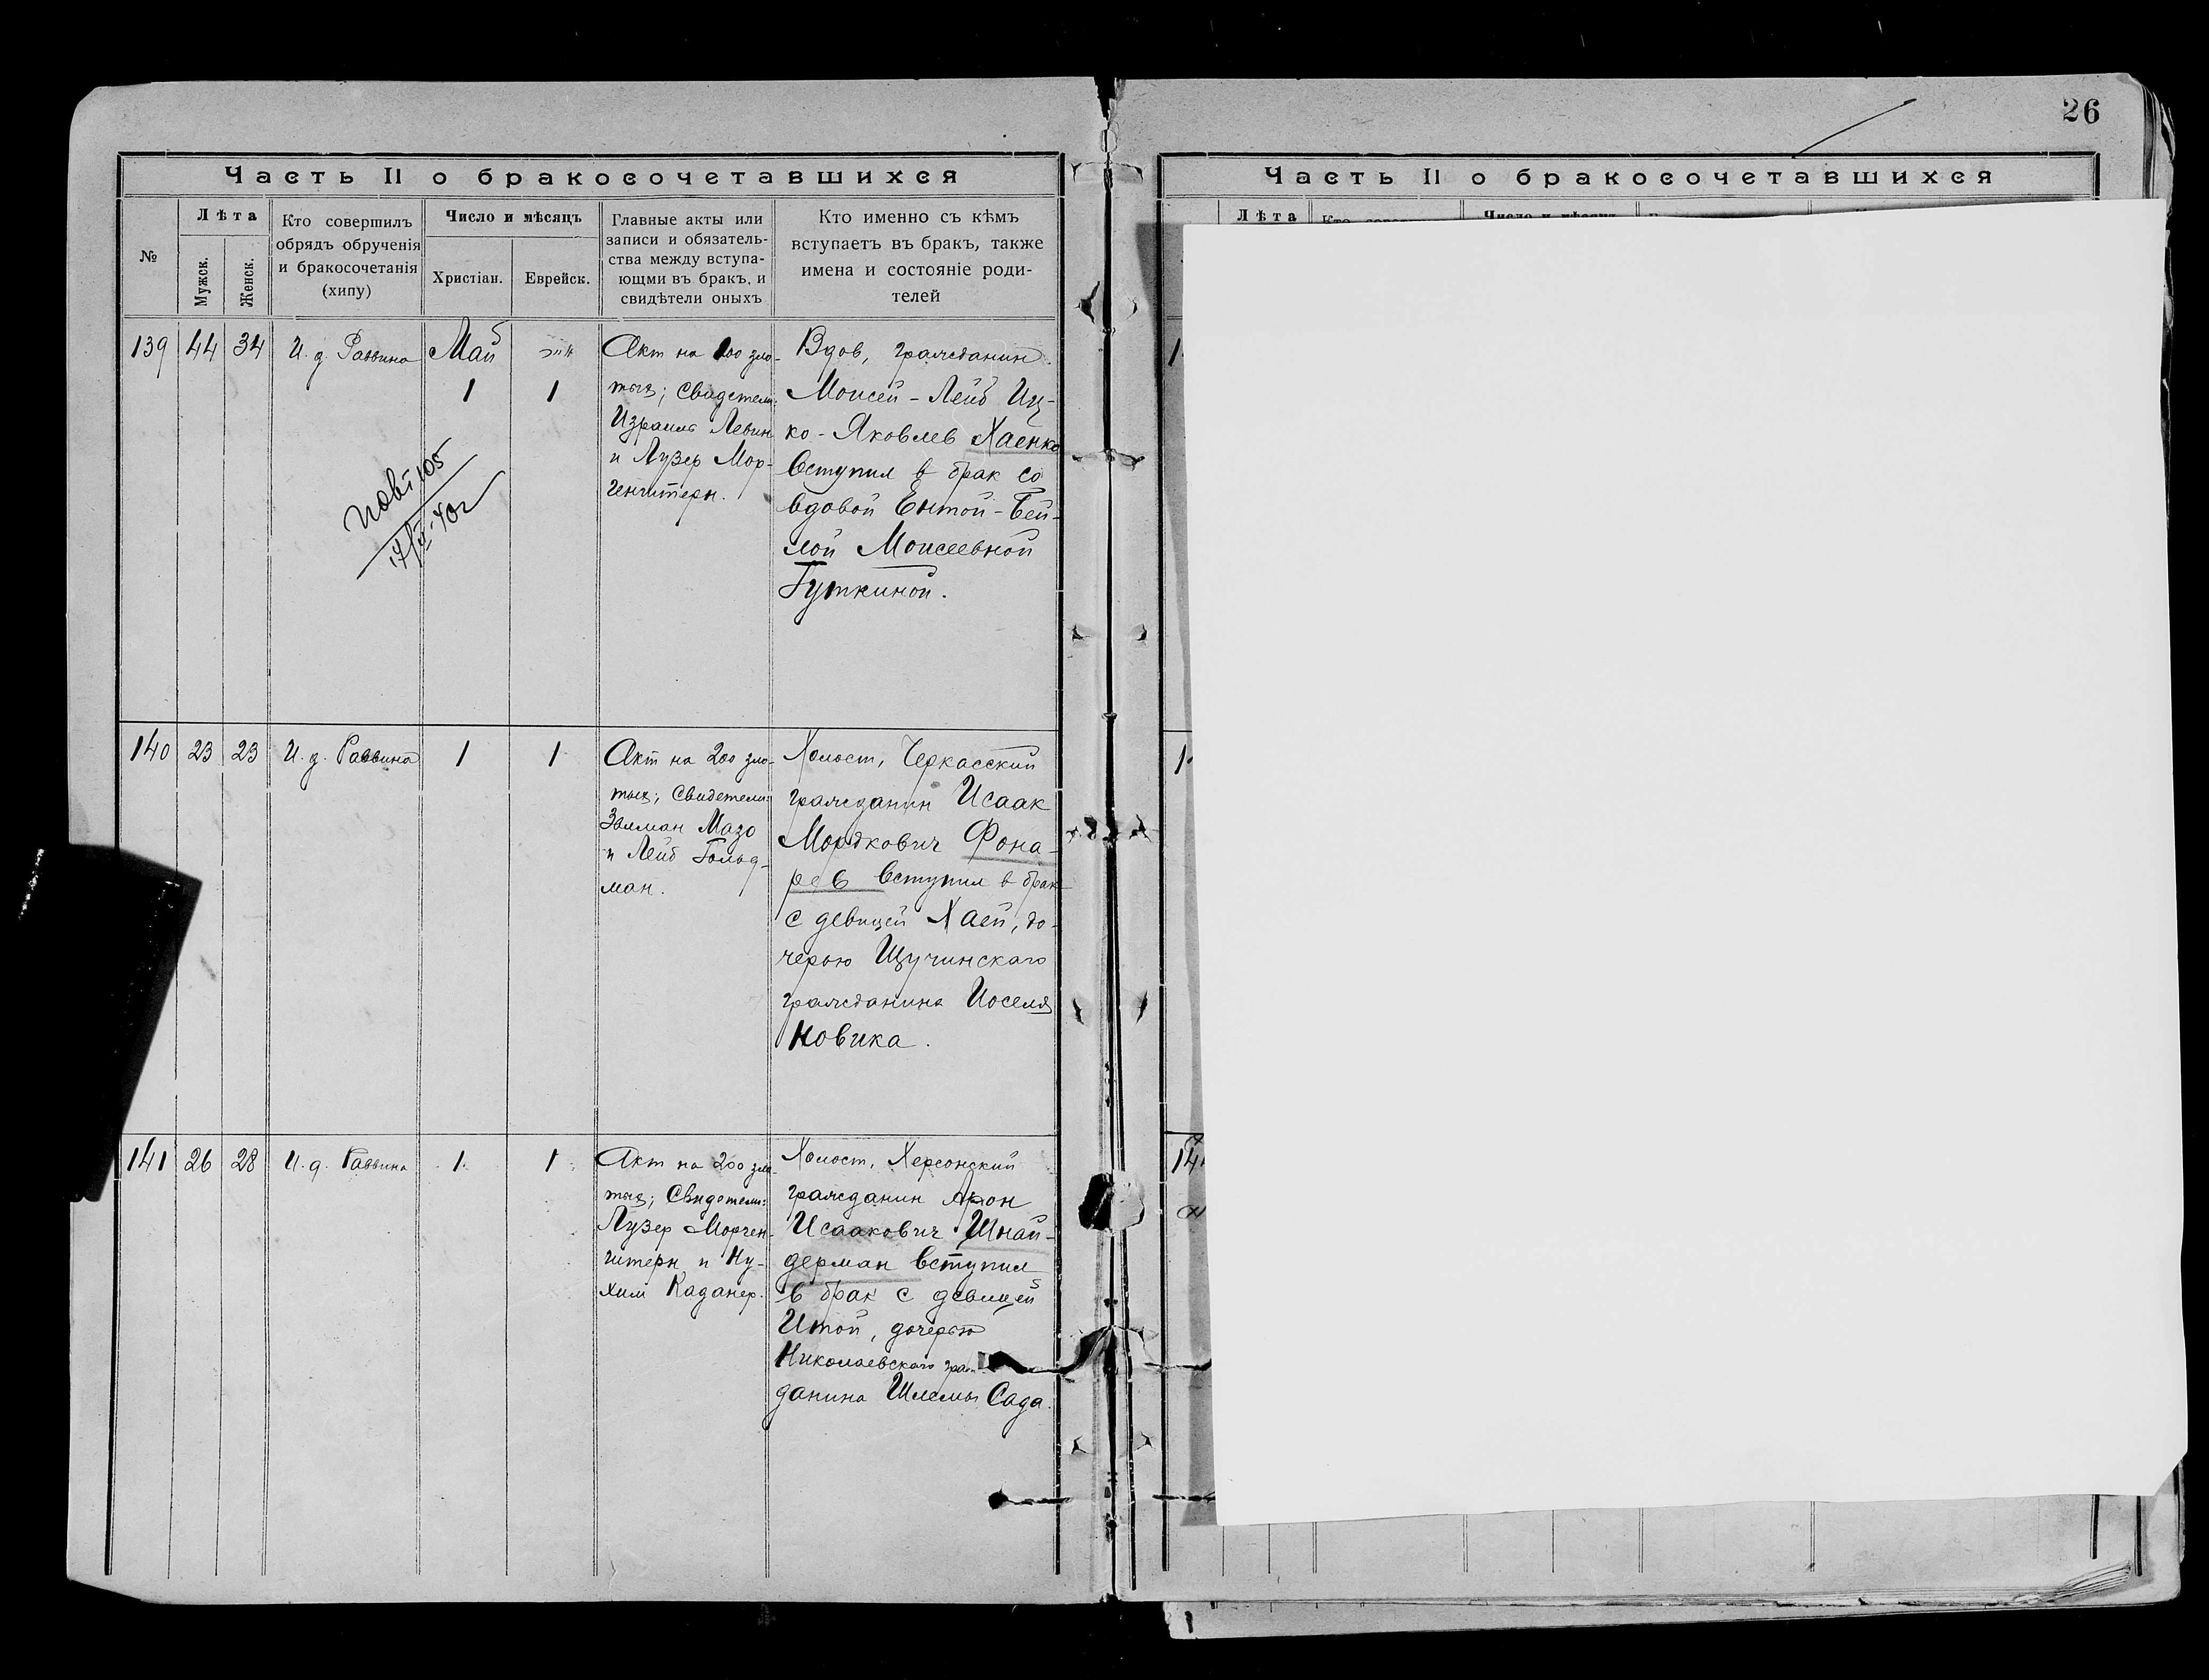 26
Часть II о бракосочетавшихся
№
Лѣта
Мужск.
Женск.
Кто совершилъ
обрядъ обрученія
и бракосочетанія
(хипу)
Число и мѣсяцъ
Христіан.
Еврейск.
Главные акты или
записи и обязатель-
ства между вступа-
ющми въ бракъ, и
свидѣтели оныхъ
Кто именно съ кѣмъ
вступаетъ въ бракъ, также
имена и состояніе роди-
телей
139
44
34
И. д. Раввина
Май
1
1
Акт на 100 зло-
тых; Свидетели:
Израиль Левин
и Лузер Мор-
генштерн.
Вдов, гражданин
Моисей - Лейб Иц-
ко - Яковлев Хаенко
вступил в брак со
вдовой Ентой - Бей-
лой Моисеевной
Гуткиной.
140
23
23
И. д. Раввина
1
1
Акт на 200 зло-
тых; Свидетели:
Залман Мазо
и Лейб Гольд-
ман.
Холост, Черкасский
гражданин Исаак
Мордкович Фона-
рев вступил в брак
с девицей Хаей, до-
черью Щучинскаго
гражданина Иоселя
Новика.
141
26
28
И. д. Раввина
1
1
Акт на 200 зло-
тых; Свидетели:
Лузер Морген-
штерн и Ну-
хим Каданер.
Холост, Херсонский
гражданин Арон
Исаакович Шнай-
дерман вступил
в брак с девицей
Итой, дочерью
Николаевскаго граж-
данина Шлемы Сада.
Часть II о бракосочетавшихся
Лѣта